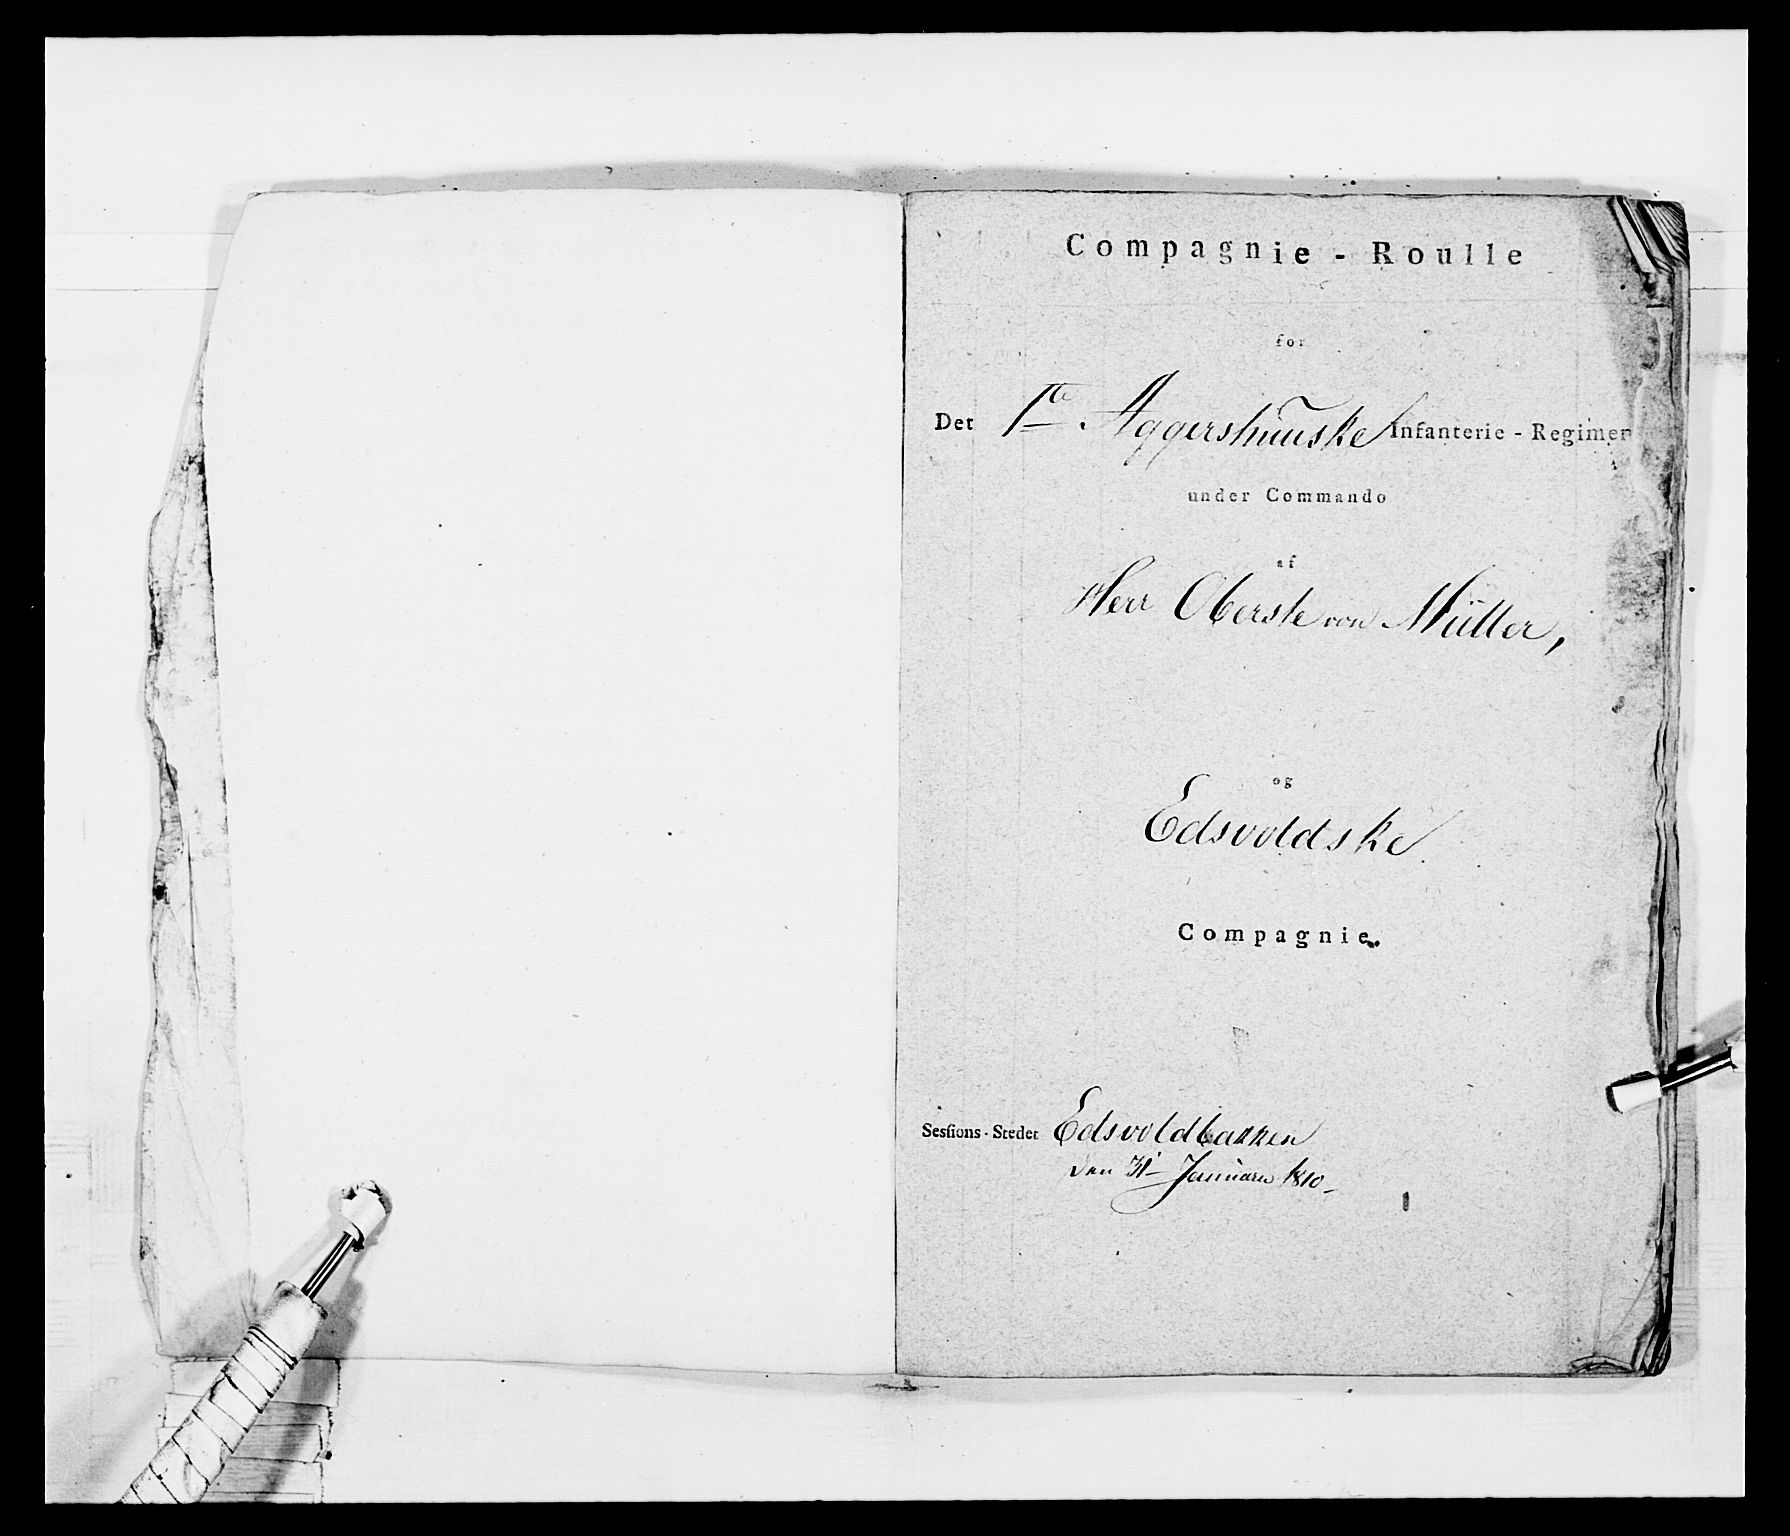 Compagnie - Roulle
for
Det 1te Aggershuuske Infanterie - Regimen
under Commando
af
Herr Oberste von Müller,
og
Edsvoldske
Compagnie.
Sessions-Stedet Edsvoldbakken
den 31 Januarii 1810